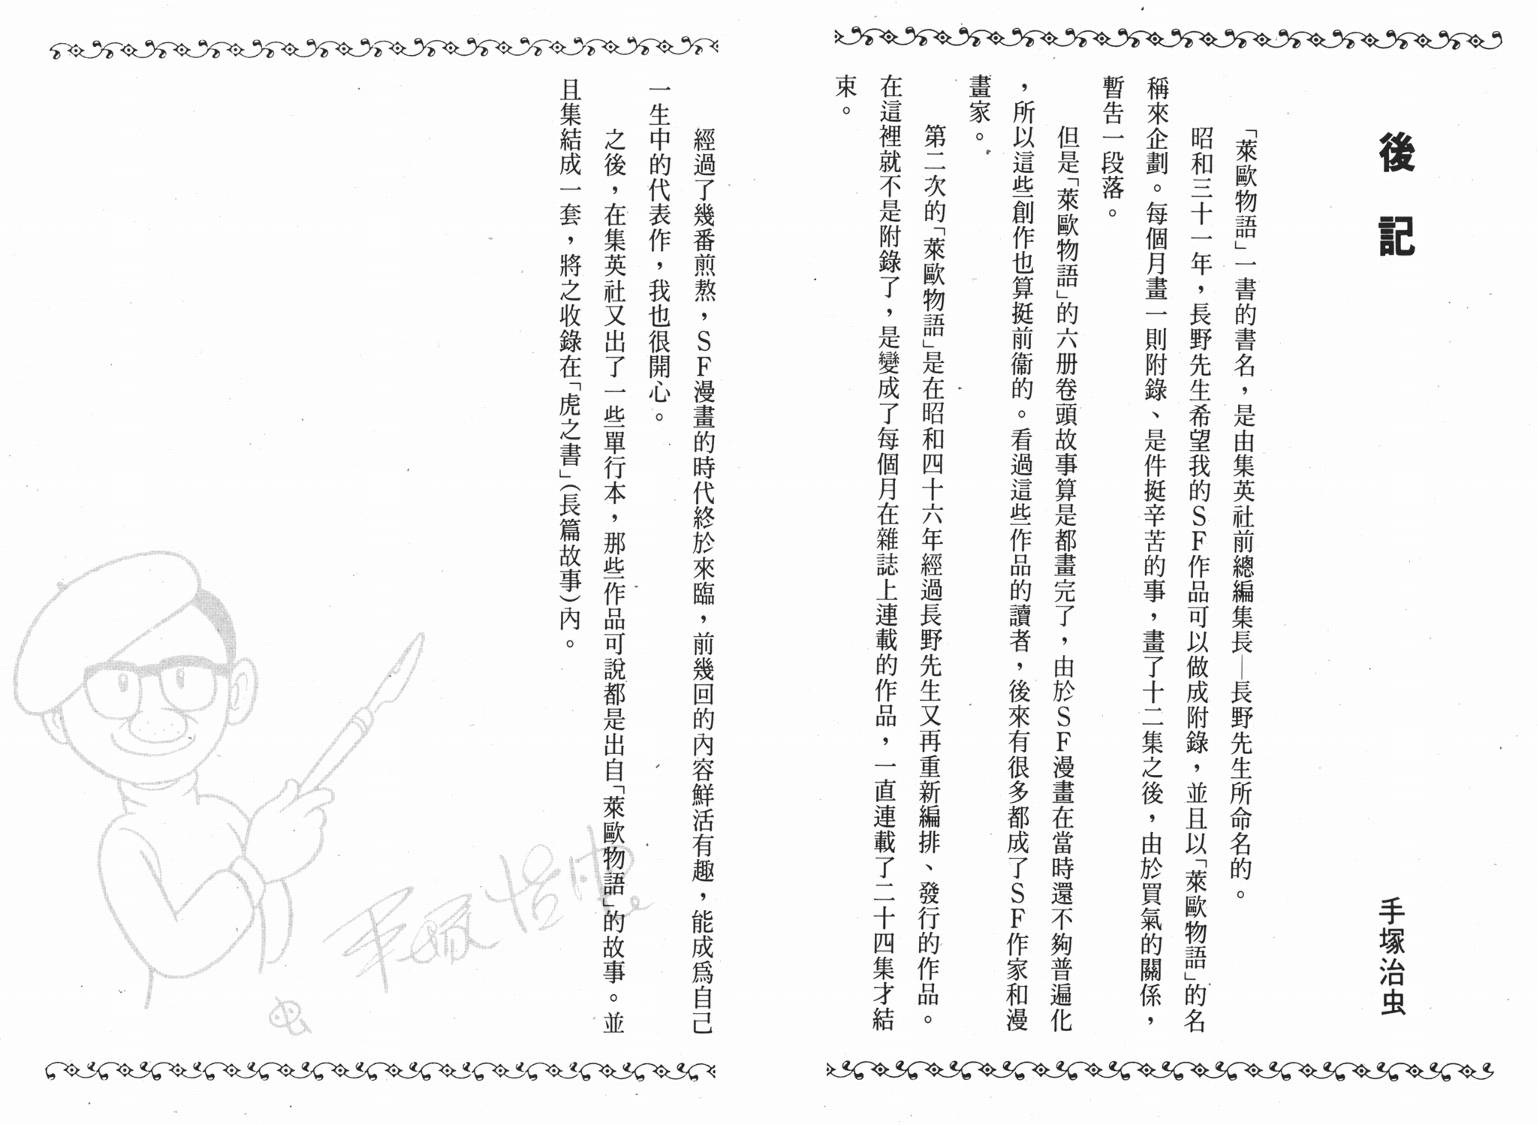 後記
手塚治虫
「萊歐物語」一書的書名，是由集英社前總編集長—長野先生所命名的。
昭和三十一年，長野先生希望我的ＳＦ作品可以做成附錄，並且以「萊歐物語」的名
稱來企劃。每個月畫一則附錄、是件挺辛苦的事，畫了十二集之後，由於買氣的關係，
暫告一段落。
但是「萊歐物語」的六册卷頭故事算是都畫完了，由於ＳＦ漫畫在當時還不夠普遍化
，所以這些創作也算挺前衞的。看過這些作品的讀者，後來有很多都成了ＳＦ作家和漫
畫家。
第二次的「萊歐物語」是在昭和四十六年經過長野先生又再重新編排、發行的作品。
在這裡就不是附錄了，是變成了每個月在雜誌上連載的作品，一直連載了二十四集才結
束。
經過了幾番煎熬，ＳＦ漫畫的時代終於來臨，前幾回的內容鮮活有趣，能成爲自己
一生中的代表作，我也很開心。
之後，在集英社又出了一些單行本，那些作品可說都是出自「萊歐物語」的故事。並
且集結成一套，將之收錄在「虎之書」（長篇故事）內。
手塚治虫